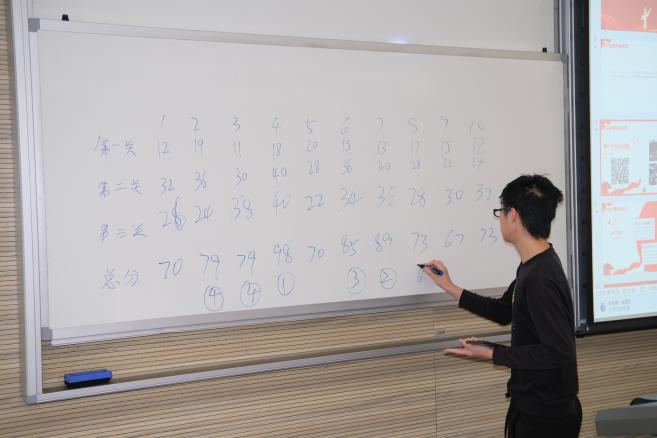 1 2 3 4 5 6 7 8 9 10
第一关 12 19 11 18 20 15 13 17 15 17
第二关 32 36 30 40 28 36 40 28 22 24
第三关 26 24 38 40 22 34 36 28 30 32
总分 70 79 79 98 70 85 89 73 67 73
④ ④ ① ③ ②